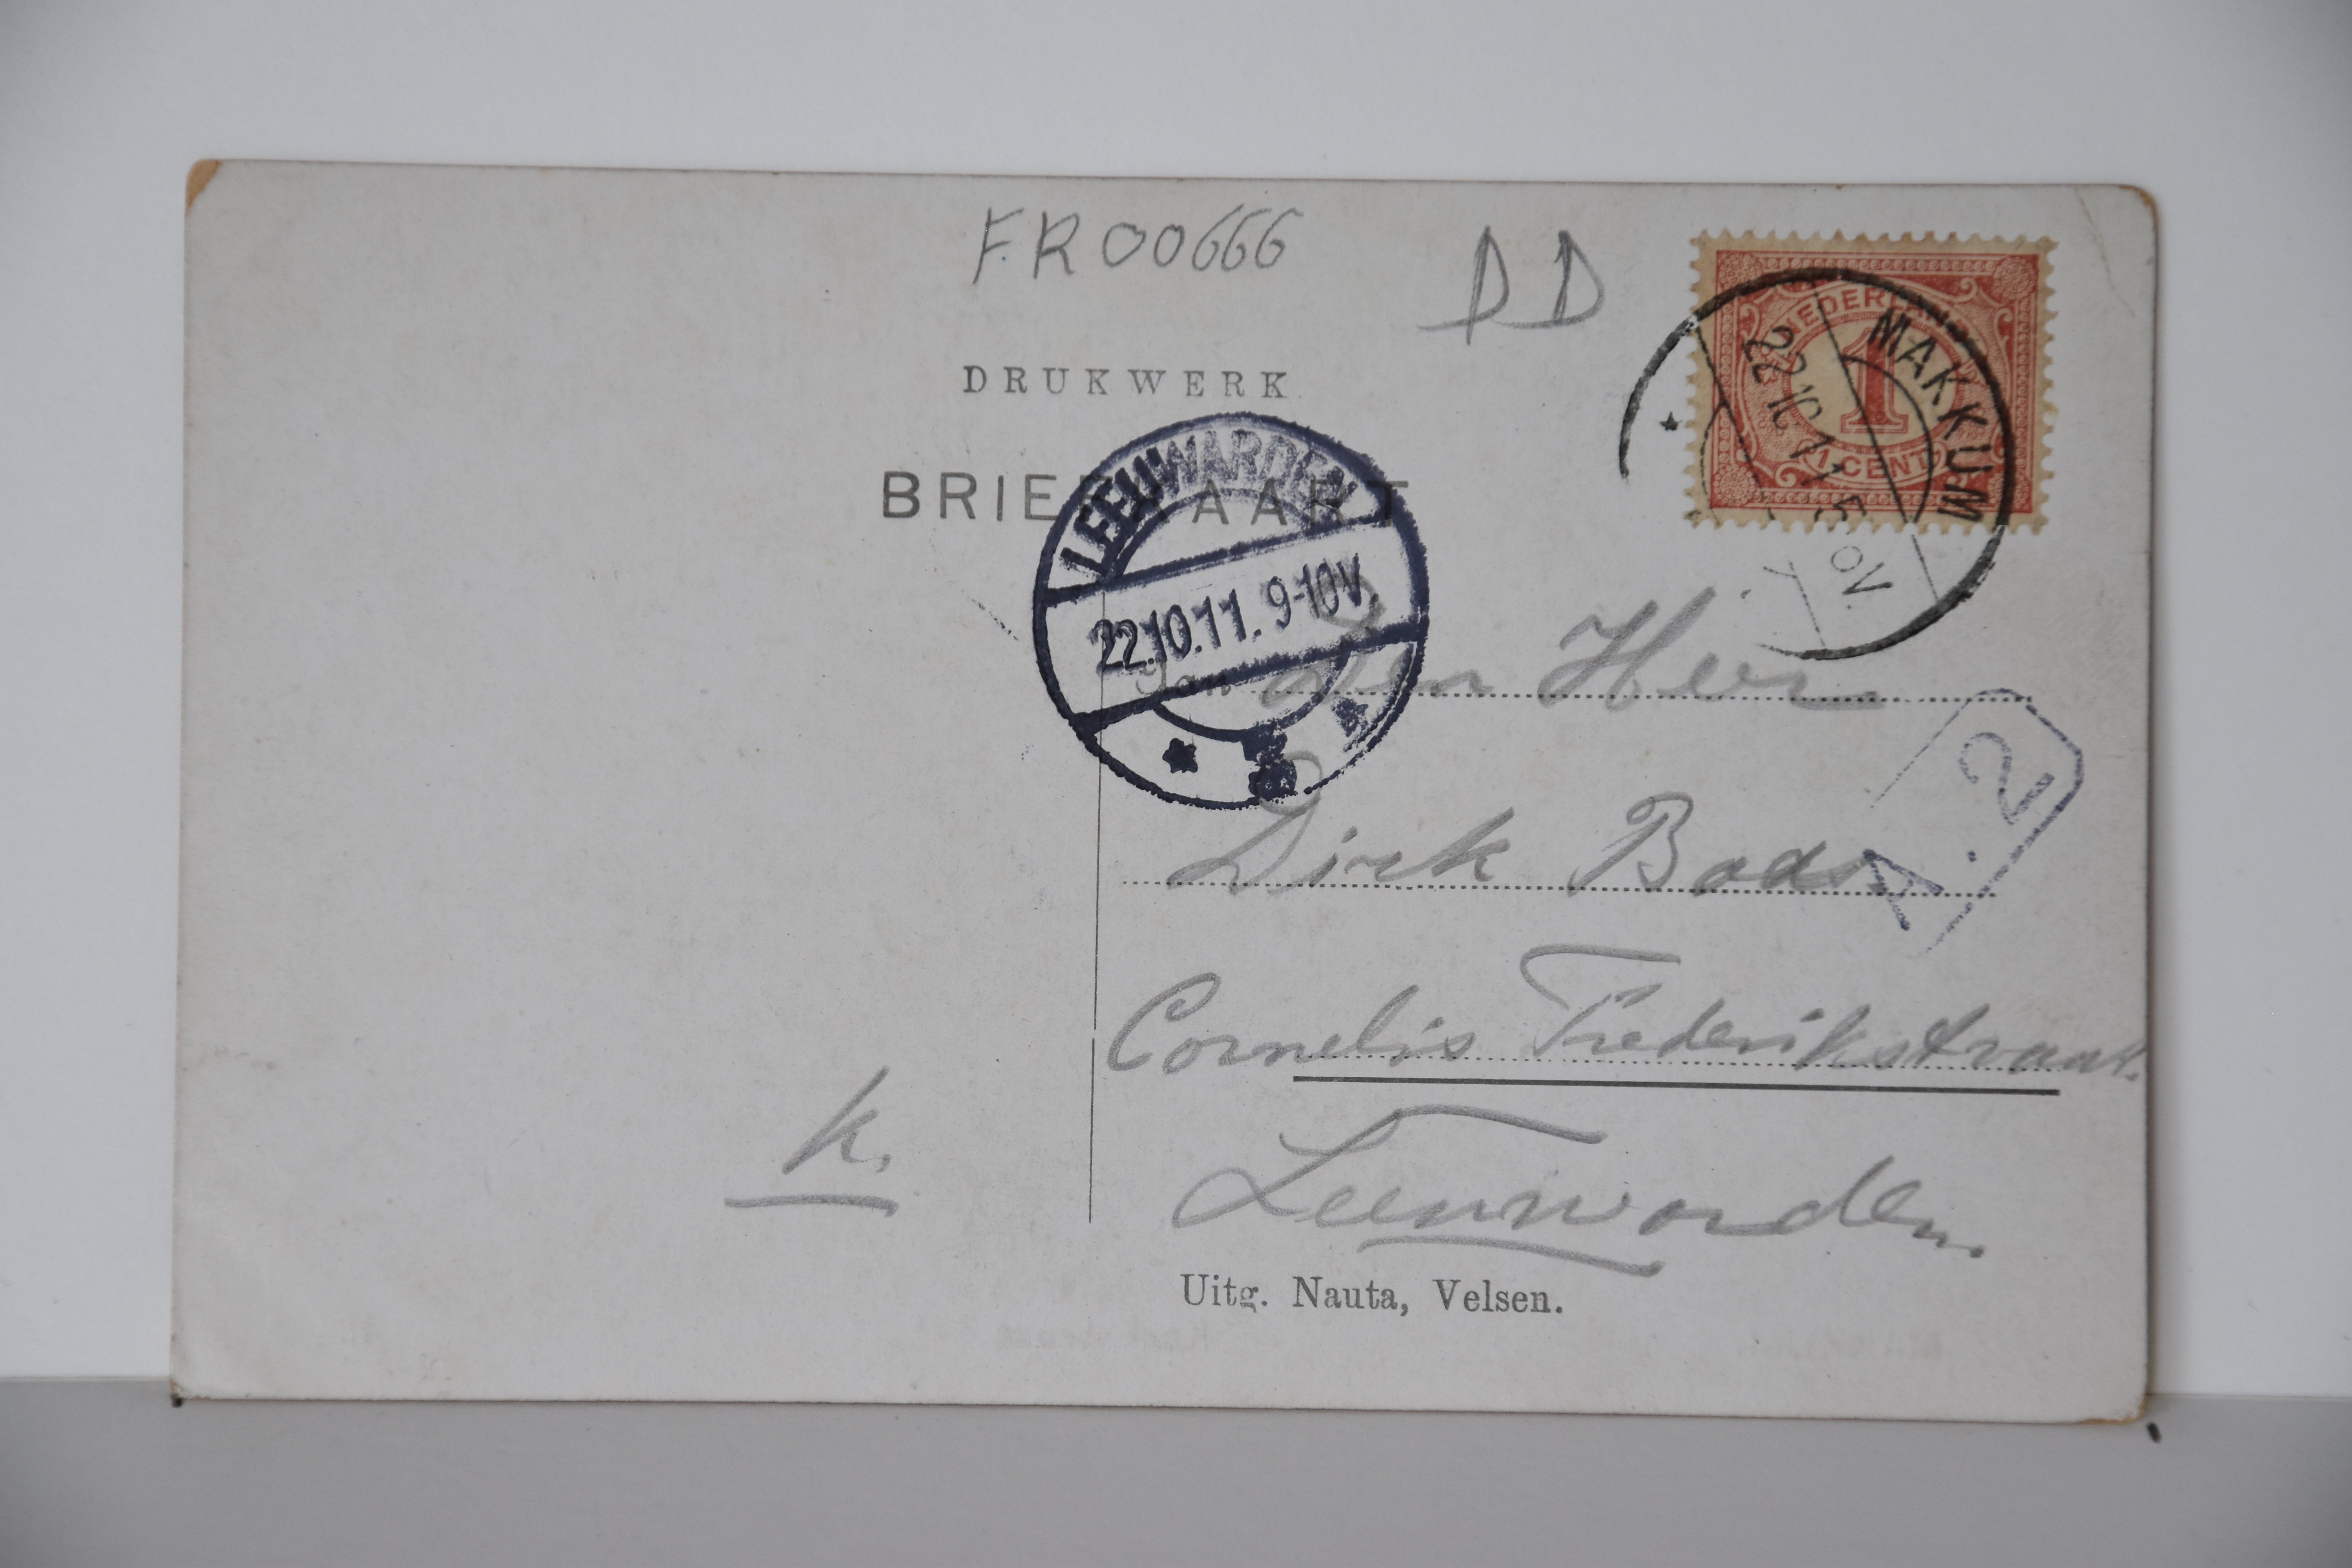 FR00666
DD
NEDERLAND
1
1 CENT
MAKKUM
22 10 11 5
DRUKWERK
BRIEFKAART
LEEUWARDEN
22.10.11. 9-10V.
Aan Den Heer
A.2
Dirk Bads
Cornelis Frederikstraat.
k.
Leeuwarden.
Uitg. Nauta, Velsen.